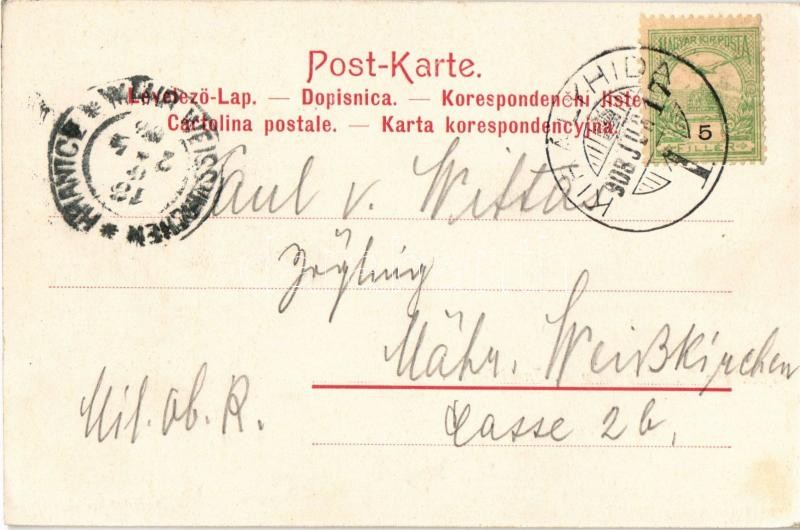 Post-Karte.
Levelező-Lap. — Dopisnica. — Korespondenční liste
Cartolina postale. — Karta korespondencyjna.
MAGYAR KIR. POSTA
5
FILLÉR
KIRALYHIDA
908 JUL 17
HRANICE
Paul v. Wittas
Zögling
Mähr. Weißkirchen
Mil. Ob. R.
Classe 2b,